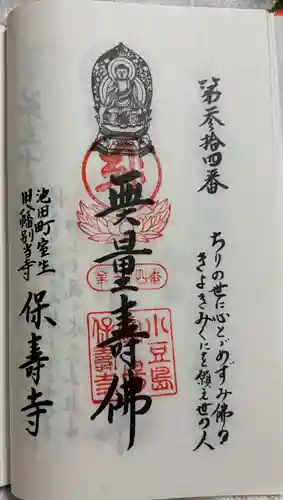 第参拾四番
ちりの世に心とゞめずみ佛の
きよきみくにを願え世の人
無量壽佛
小豆島
保壽寺
池田町室生
旧八幡別当寺
保壽寺